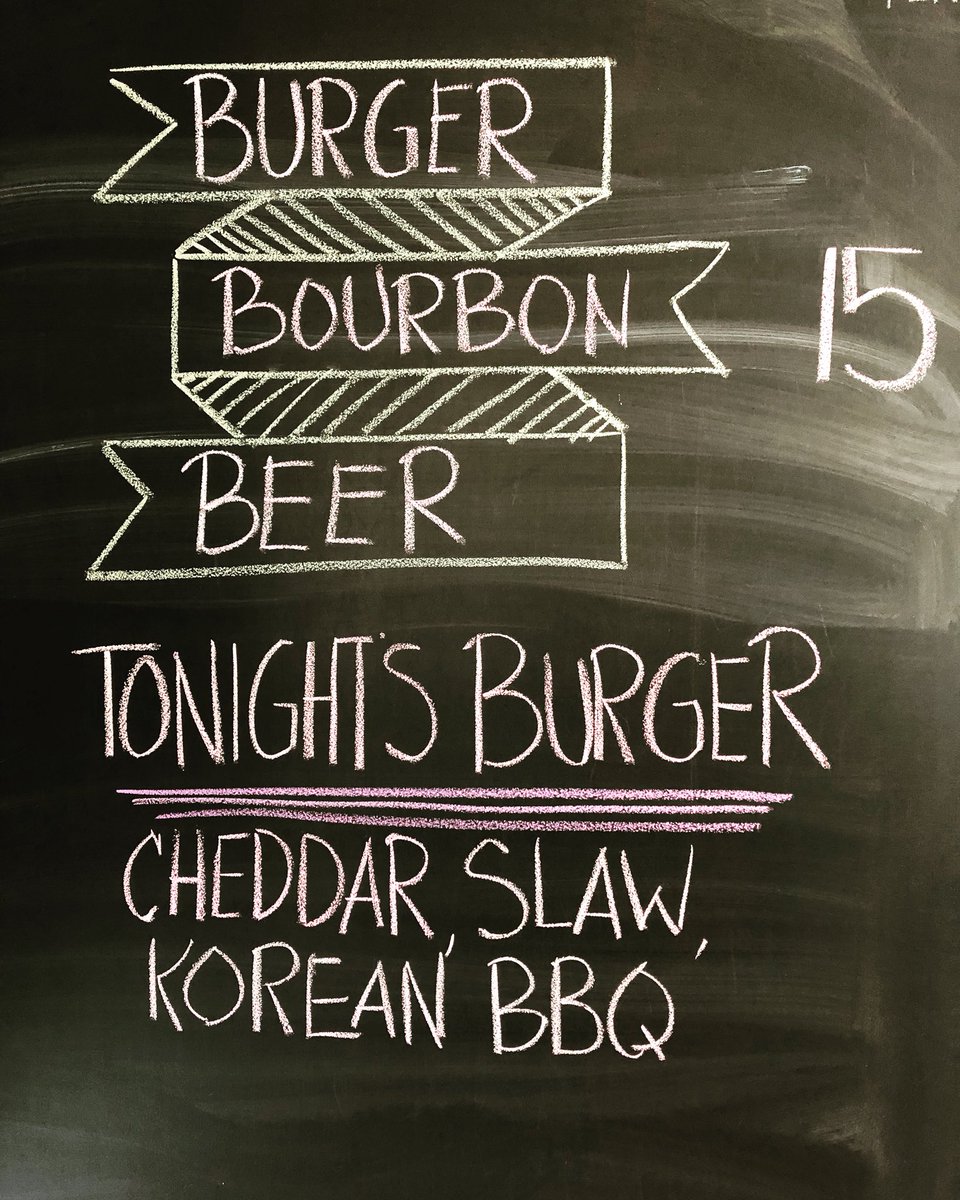 BURGER
BOURBON 15
BEER
TONIGHT'S BURGER
CHEDDAR, SLAW,
KOREAN BBQ